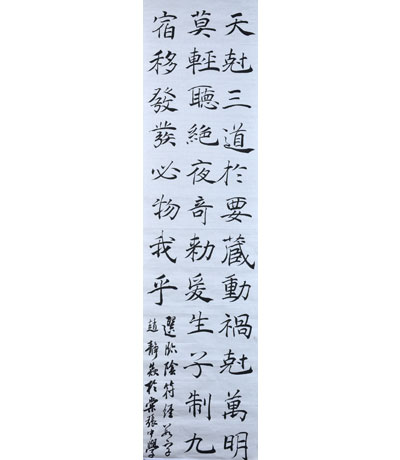 天尅三道於要藏動禍尅萬明
莫輕聽絶夜奇勑爰生子制九
宿移發發必物我乎
選臨陰符經若字
趙靜於棠張中學